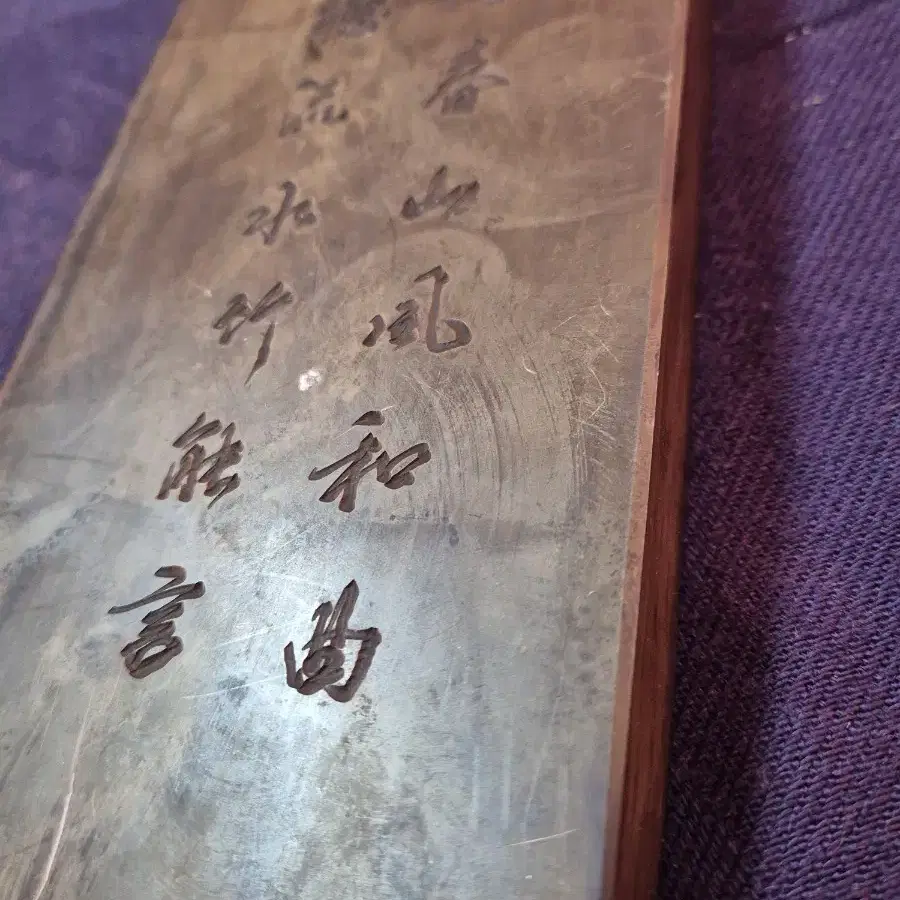 春山風和曲
流水竹能言